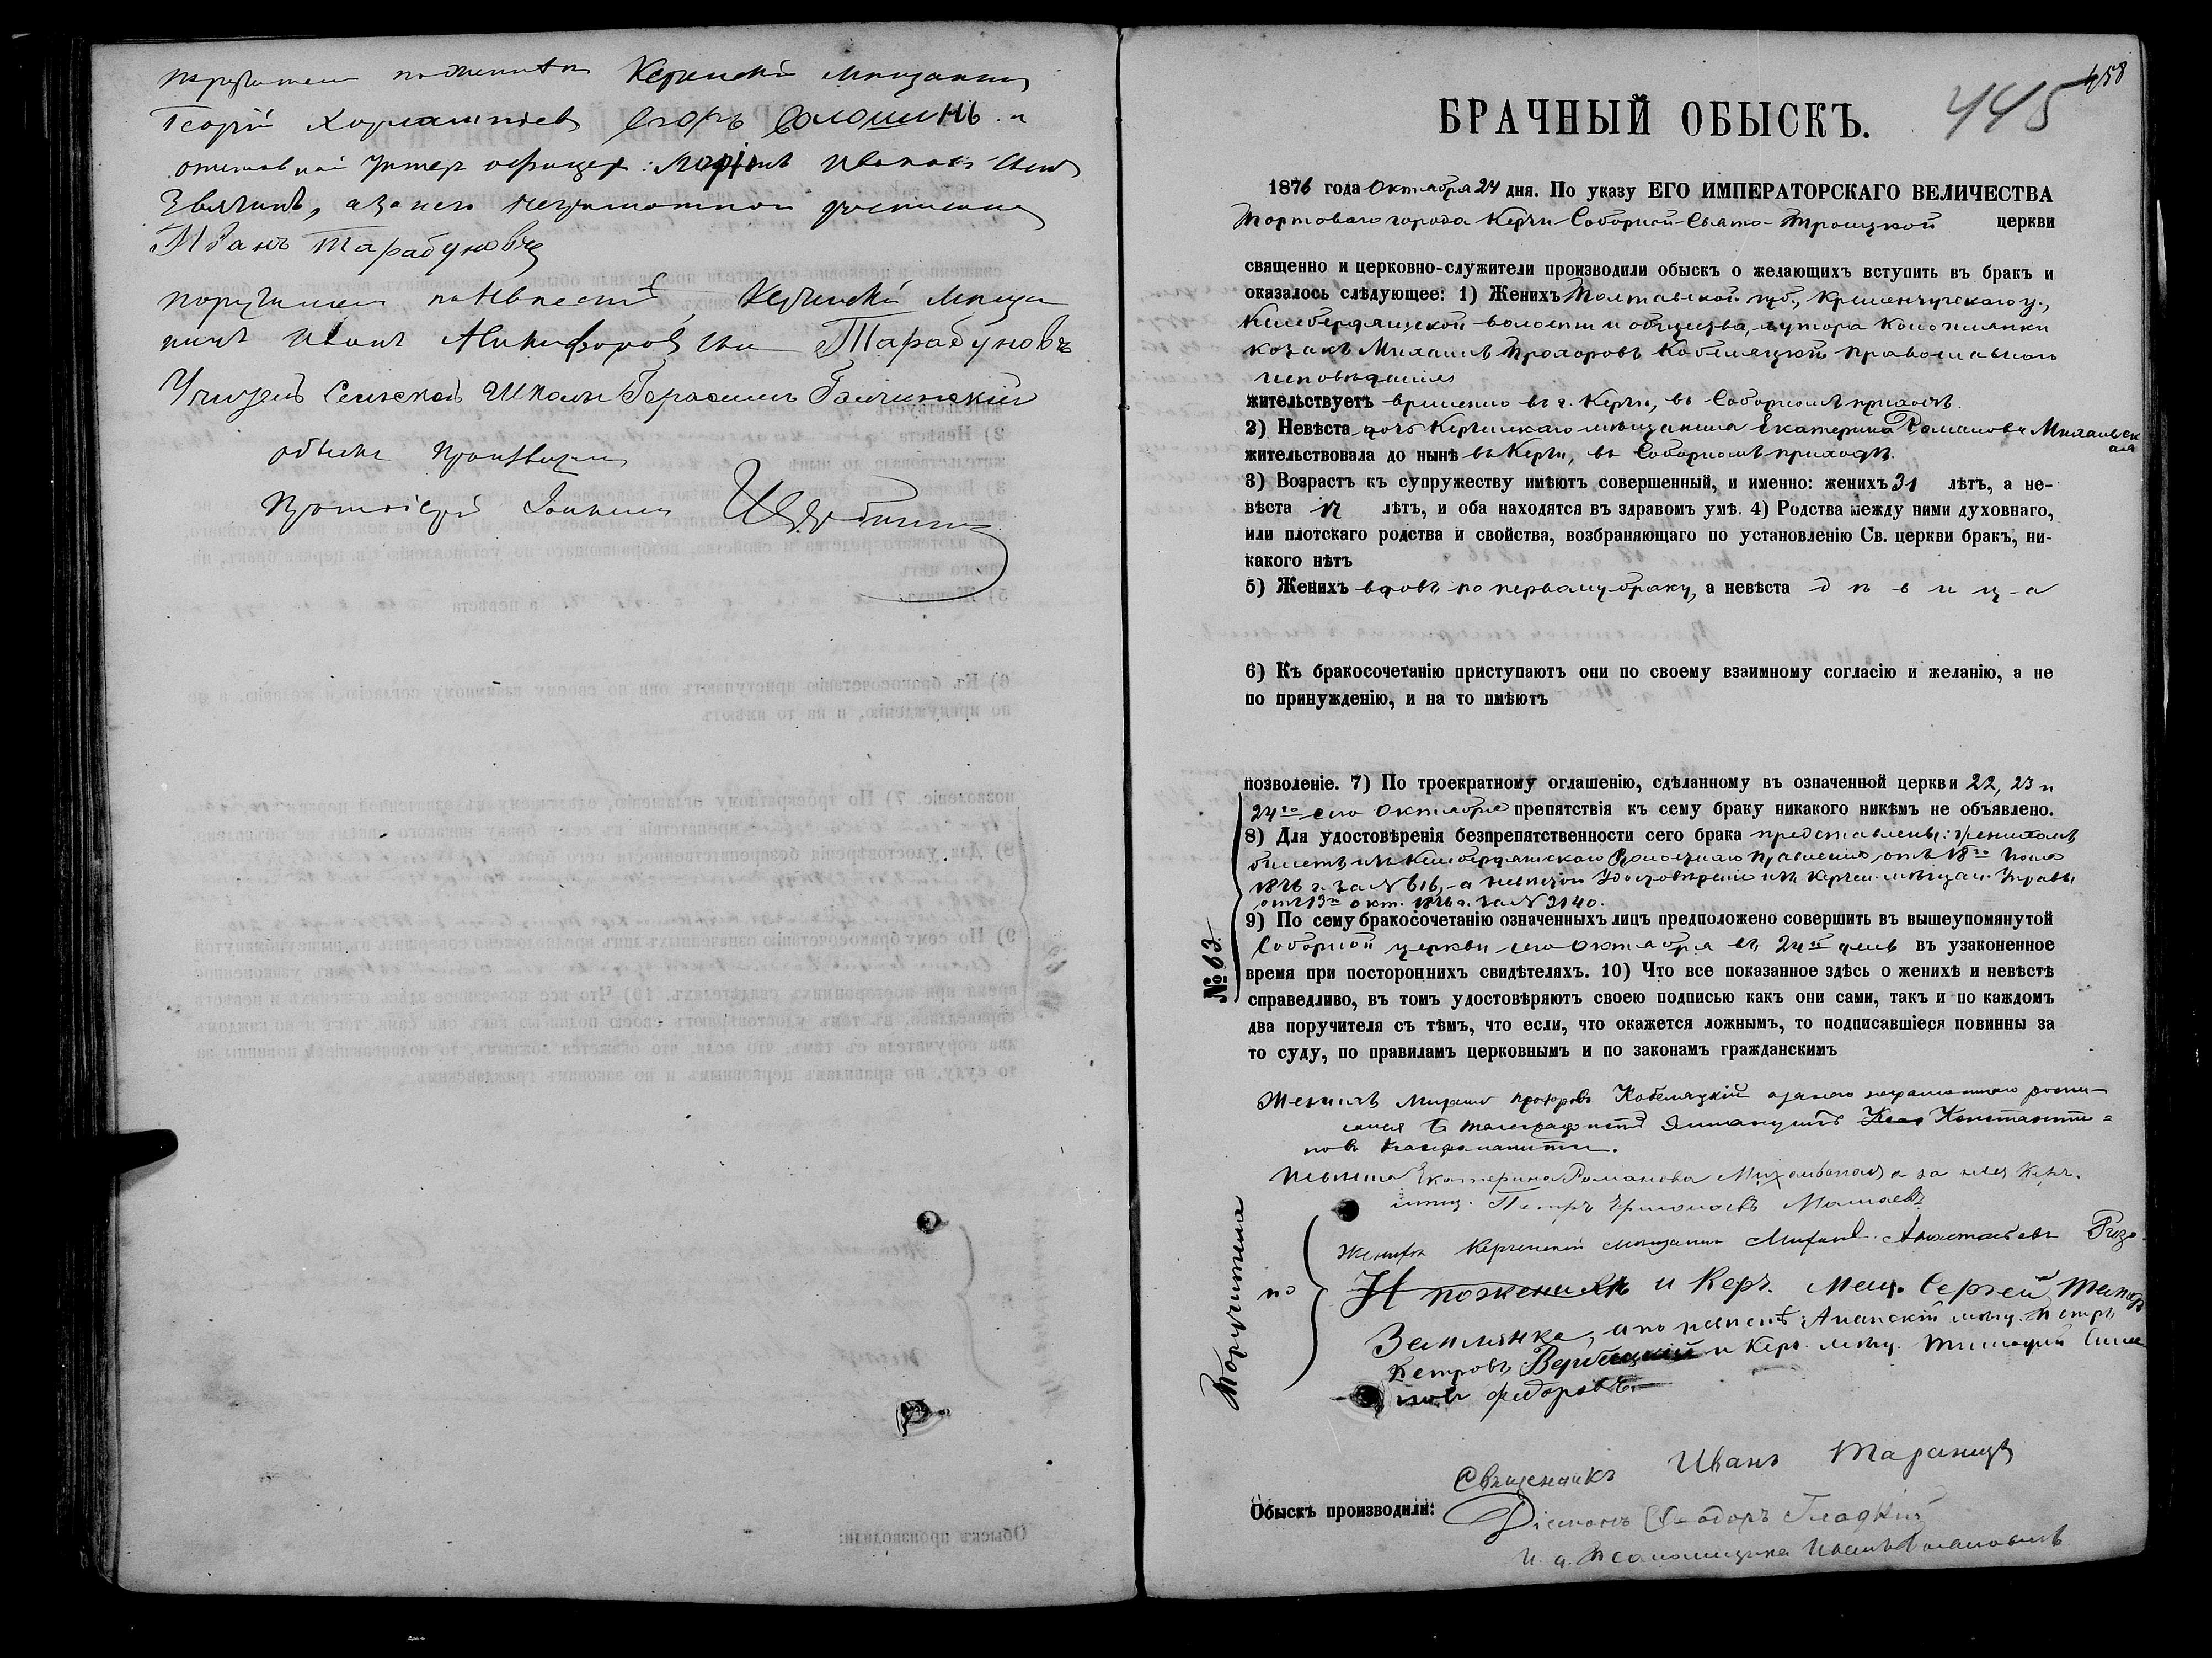 поручители по женихѣ Керченскій мѣщанинъ
Георгій Харлампіевъ Егоръ Волошинъ и
отставной унтеръ офицеръ: Иванов сынъ
Звягинъ, а за него неграмотного росписался
Иванъ Тарабуновъ
поручители по Невѣстѣ Керченскій мѣща
нинъ Иванъ Никифоровъ сын Тарабуновъ
Учитель Сельской Школы Герасимъ Галчинскій
обыскъ Производилъ
Протоіерей Іоаннъ
458
445
БРАЧНЫЙ ОБЫСКЪ.
1876 года Октября 24 дня. По указу ЕГО ИМПЕРАТОРСКАГО ВЕЛИЧЕСТВА
Портоваго города Керчи Соборной Свято-Троицкой церкви
священно и церковно-служители производили обыскъ о желающихъ вступить въ бракъ и
оказалось слѣдующее: 1) Женихъ Полтавской губ., Кременчугскаго у.,
Келебердянской волости и общества, хутора
козакъ Михаилъ Прохоровъ Кобеляцкій православнаго
исповѣданія
жительствуетъ временно въ г. Керчи, въ Соборномъ приходѣ.
2) Невѣста дочь Керченскаго мѣщанина Екатерина Романова Михальск
ая
жительствовала до нынѣ въ Керчи, въ Соборномъ приходѣ.
3) Возрастъ къ супружеству имѣютъ совершенный, и именно: женихъ 31 лѣтъ, а не-
вѣста 17 лѣтъ, и оба находятся въ здравомъ умѣ. 4) Родства между ними духовнаго,
или плотскаго родства и свойства, возбраняющаго по установленію Св. церкви бракъ, ни-
какого нѣтъ
5) Женихъ вдовъ по первому браку, а невѣста дѣвица
6) Къ бракосочетанію приступаютъ они по своему взаимному согласію и желанію, а не
по принужденію, и на то имѣютъ
позволеніе. 7) По троекратному оглашенію, сдѣланному въ означенной церкви 22, 23 и
24го сего Октября препятствія къ сему браку никакого никѣмъ не объявлено.
8) Для удостовѣренія безпрепятственности сего брака представлены: женихомъ
билетъ изъ Келебердянскаго Волостнаго Правленія отъ 18го Іюля
1876 г. за № 616, а невѣстою Удостовѣреніе изъ Керчен. мѣщан. Управы
отъ 13го окт. 1876 г. за № 2140.
9) По сему бракосочетанію означенныхъ лицъ предположено совершить въ вышеупомянутой
Соборной церкви сего Октября въ 24й день въ узаконенное
время при постороннихъ свидѣтеляхъ. 10) Что все показанное здѣсь о женихѣ и невѣстѣ
справедливо, въ томъ удостовѣряютъ своею подписью какъ они сами, такъ и по каждомъ
два поручителя съ тѣмъ, что если, что окажется ложнымъ, то подписавшіеся повинны за
то суду, по правиламъ церковнымъ и по законамъ гражданскимъ
№ 63.
Женихъ Михаилъ Прохоровъ Кобеляцкій а за него неграмотнаго роспи-
сался телеграфистъ Эммануилъ Константи=
новъ
Невѣста Екатерина Романова Михальская а за нея Керч.
мѣщ. Петръ Мамаевъ
Поручители
по
Жениху Керченскій мѣщанинъ Михаилъ
И по женихѣ и Керч. Мещ. Сергей
Землянка, а по невѣстѣ: Анапскій мѣщ. Петръ
Петровъ Вербицкій и Керч. мѣщ. Тимофей Симо
новъ Федоровъ
Священникъ Иванъ Таранецъ
Обыскъ производили:
Діаконъ Ѳеодоръ Гладкій
И. д. Псаломщика